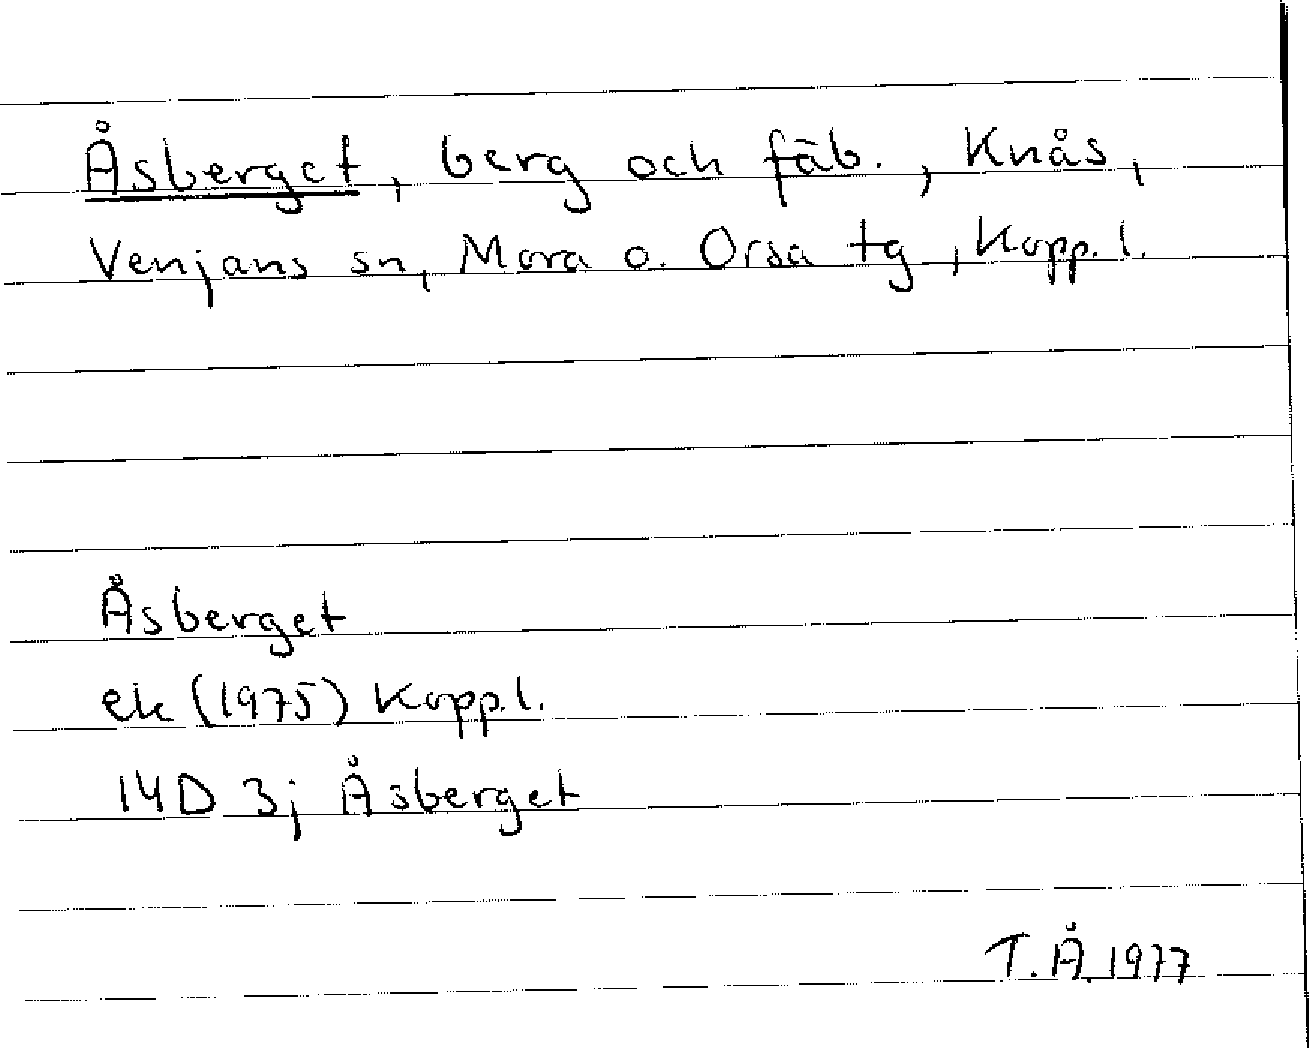 Åsberget, berg och fäb., Knås,
Venjans sn, Mora o. Orsa tg, Kopp. l.
Åsberget
ek (1975) Kopp. l.
14D 3j Åsberget
T. Å. 1977